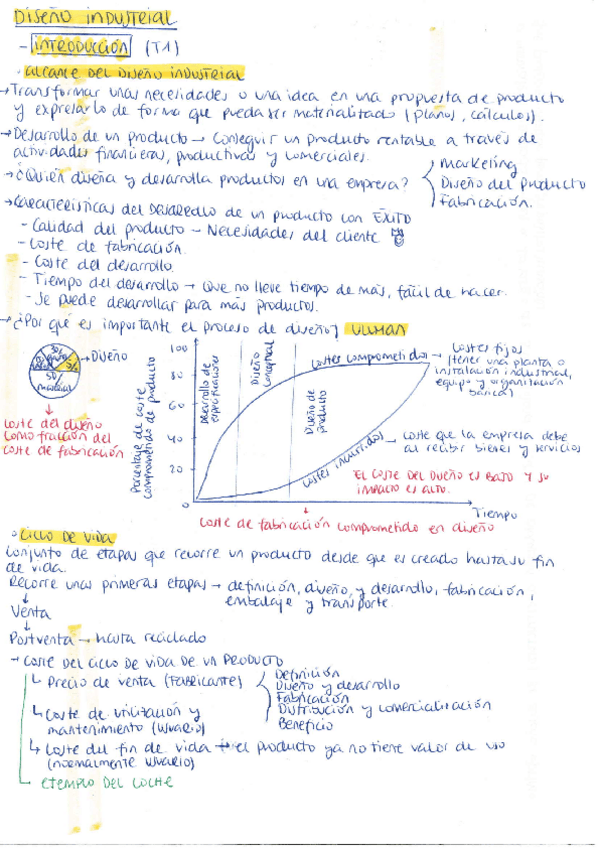 DISEÑO INDUSTRIAL
- INTRODUCCIÓN (T1)
· ALCANCE DEL DISEÑO INDUSTRIAL
→ Transformar unas necesidades o una idea en una propuesta de producto
y expresarlo de forma que pueda ser materialitado (planos, cálculos).
→ Desarrollo de un producto → Conseguir un producto rentable a través de
actividades financieras, productivas y comerciales.
→ ¿Quién diseña y desarrolla productos en una empresa?
Marketing
Diseño del Producto
Fabricación.
→ Características del DESARROLLO DE un producto con ÉXITO
- Calidad del producto - Necesidades del cliente
- Coste de fabricación.
- Coste del desarrollo.
- Tiempo del desarrollo → Que no lleve tiempo de más, fácil de hacer.
- Se puede desarrollar para más productos.
→ ¿Por qué es importante el proceso de diseño? ULLMAN
5%
50
material
→ Diseño
Coste del diseño
como fracción del
coste de fabricación
Porcentaje de coste
comprometido de producto
100
80
60
40
20
0
Desarrollo de
especificaciones
Diseño
Conceptual
Diseño de
producto
Costes comprometidos
→ Costes fijos
(tener una planta o
instalación industrial,
equipo y organitación
básica)
Costes incurridos
→ Coste que la empresa debe
al recibir bienes y servicios
EL COSTE DEL DISEÑO ES BAJO Y SU
IMPACTO ES ALTO.
Tiempo
Coste de fabricación comprometido en diseño
· CICLO DE VIDA
Conjunto de etapas que recorre un producto desde que es creado hasta su fin
de vida.
Recorre unas primeras etapas → definición, diseño, y desarrollo, fabricación,
embalaje y transporte.
Venta
Postventa → hasta reciclado
→ COSTE DEL CICLO DE VIDA DE UN PRODUCTO
↳ Precio de venta (FABRICANTE)
Definición
Diseño y desarrollo
Fabricación
Distribución y comercialitación
Beneficio
↳ Coste de utilización y
mantenimiento (USUARIO)
↳ Coste del fin de vida → el producto ya no tiene valor de uso
(normalmente USUARIO)
EJEMPLO DEL COCHE